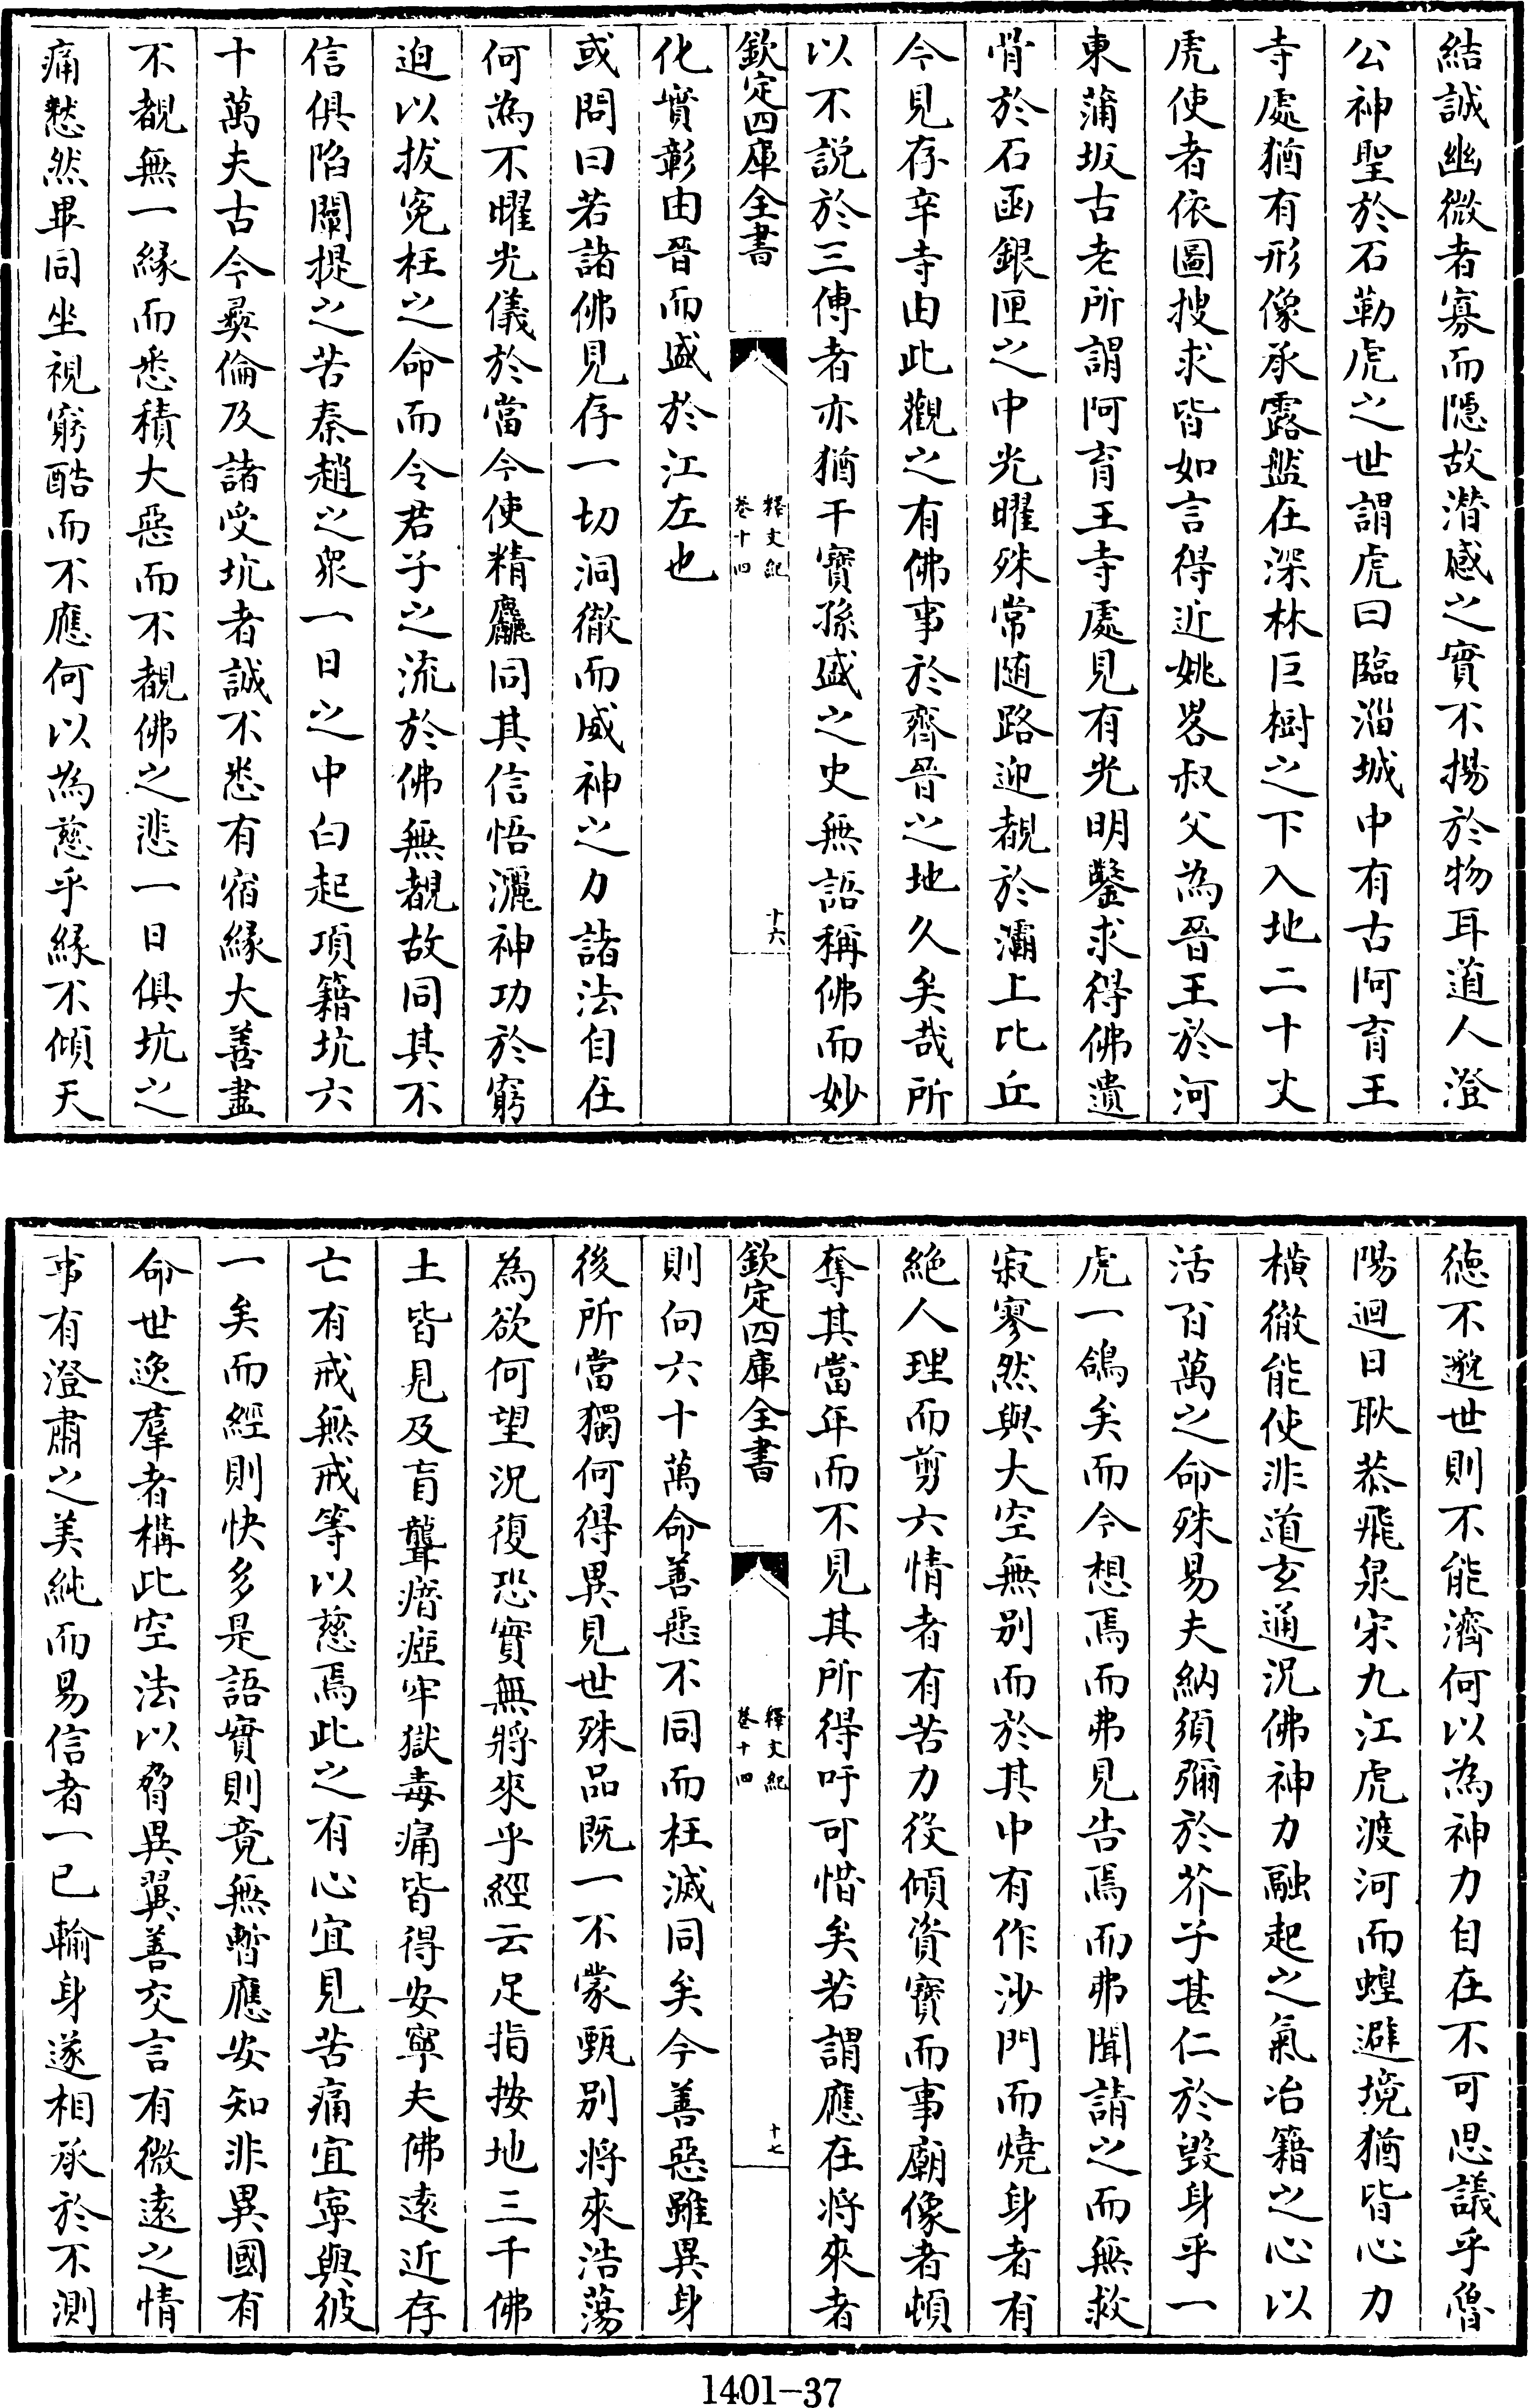 結誠幽微者寡而隠故潜感之實不揚於物耳道人澄
公神聖於石勒虎之世謂虎曰臨淄城中有古阿育王
寺處猶有形像承露盤在深林巨樹之下入地二十丈
虎使者依圖搜求皆如言得近姚畧叔父為晉王於河
東蒲坂古老所謂阿育王寺處見有光明鑿求得佛遺
骨於石函銀匣之中光曜殊常随路迎覩於灞上比丘
今見存辛寺由此觀之有佛事於齊晉之地久矣哉所
以不説於三傳者亦猶干寶孫盛之史無語稱佛而妙
欽定四庫全書
釋文紀
卷十四
十六
化實彰由晉而盛於江左也
或問曰若諸佛見存一切洞徹而威神之力諸法自在
何為不曜光儀於當今使精麤同其信悟灑神功於窮
迫以拔寃枉之命而令君子之流於佛無覩故同其不
信俱陷闡提之苦秦趙之衆一日之中白起項籍坑六
十萬夫古今彞倫及諸受坑者誠不悉有宿緣大善盡
不覩無一緣而悉積大惡而不覩佛之悲一日俱坑之
痛愁然畢同坐視窮酷而不應何以為慈乎緣不傾天
徳不邈世則不能濟何以為神力自在不可思議乎魯
陽迴日耿恭飛泉宋九江虎渡河而蝗避境猶皆心力
橫徹能使非道玄通況佛神力融起之氣冶籍之心以
活百萬之命殊易夫納須彌於芥子甚仁於毀身乎一
虎一鴿矣而今想焉而弗見告焉而弗聞請之而無救
寂寥然與大空無别而於其中有作沙門而燒身者有
絶人理而剪六情者有苦力役傾資寶而事廟像者頓
奪其當年而不見其所得吁可惜矣若謂應在將來者
欽定四庫全書
釋文紀
卷十四
十七
則向六十萬命善惡不同而枉滅同矣今善惡雖異身
後所當獨何得異見世殊品既一不蒙甄别將來浩蕩
為欲何望況復恐實無將來乎經云足指按地三千佛
土皆見及盲聾瘖瘂牢獄毒痛皆得安寧夫佛遠近存
亡有戒無戒等以慈焉此之有心宜見苦痛宜寧與彼
一矣而經則快多是語實則竟無暫應安知非異國有
命世逸羣者構此空法以脅異翼善交言有微遠之情
事有澄肅之美純而易信者一已輸身遂相承於不測
1401-37